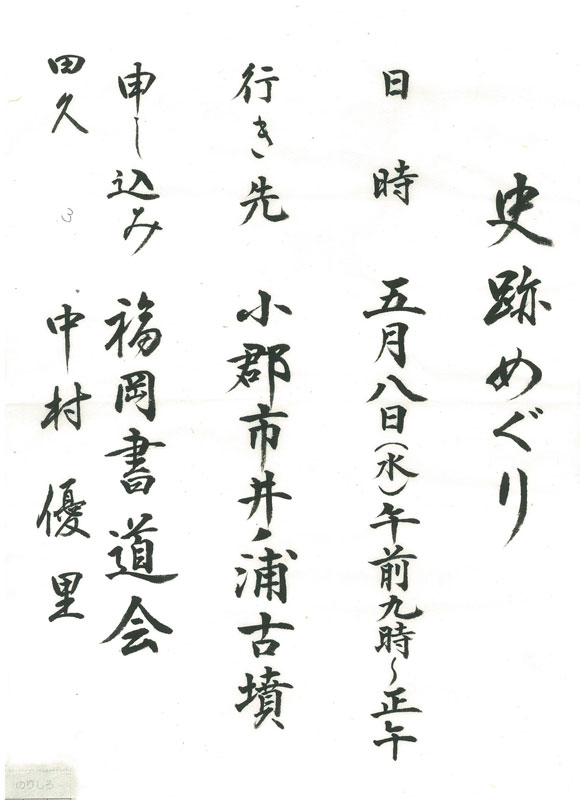 史跡めぐり
日時 五月八日(水)午前九時~正午
行き先 小郡市井ノ浦古墳
申し込み 福岡書道会
田久 3 中村優里
のりしろ